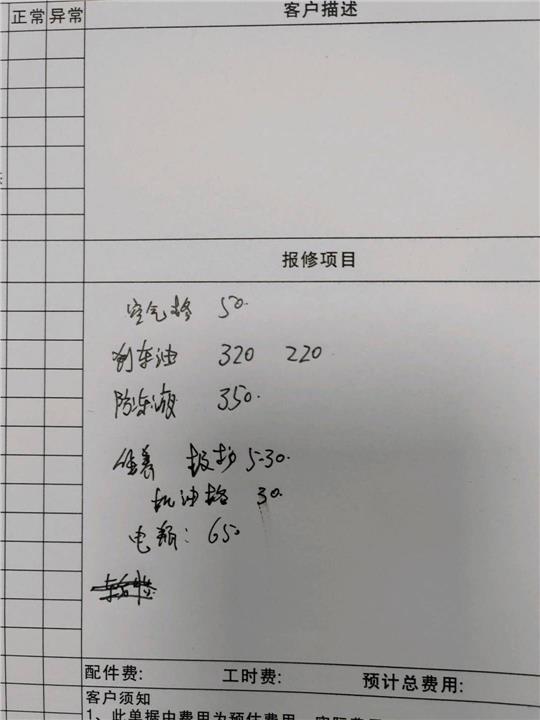 正常 异常 客户描述
报修项目
空气格 50.
刹车油 320 220
防冻液 350.
保养 530.
机油格 30.
电瓶: 650
配件费: 工时费: 预计总费用:
客户须知
1、此单据中费用为预估费用,实际费用